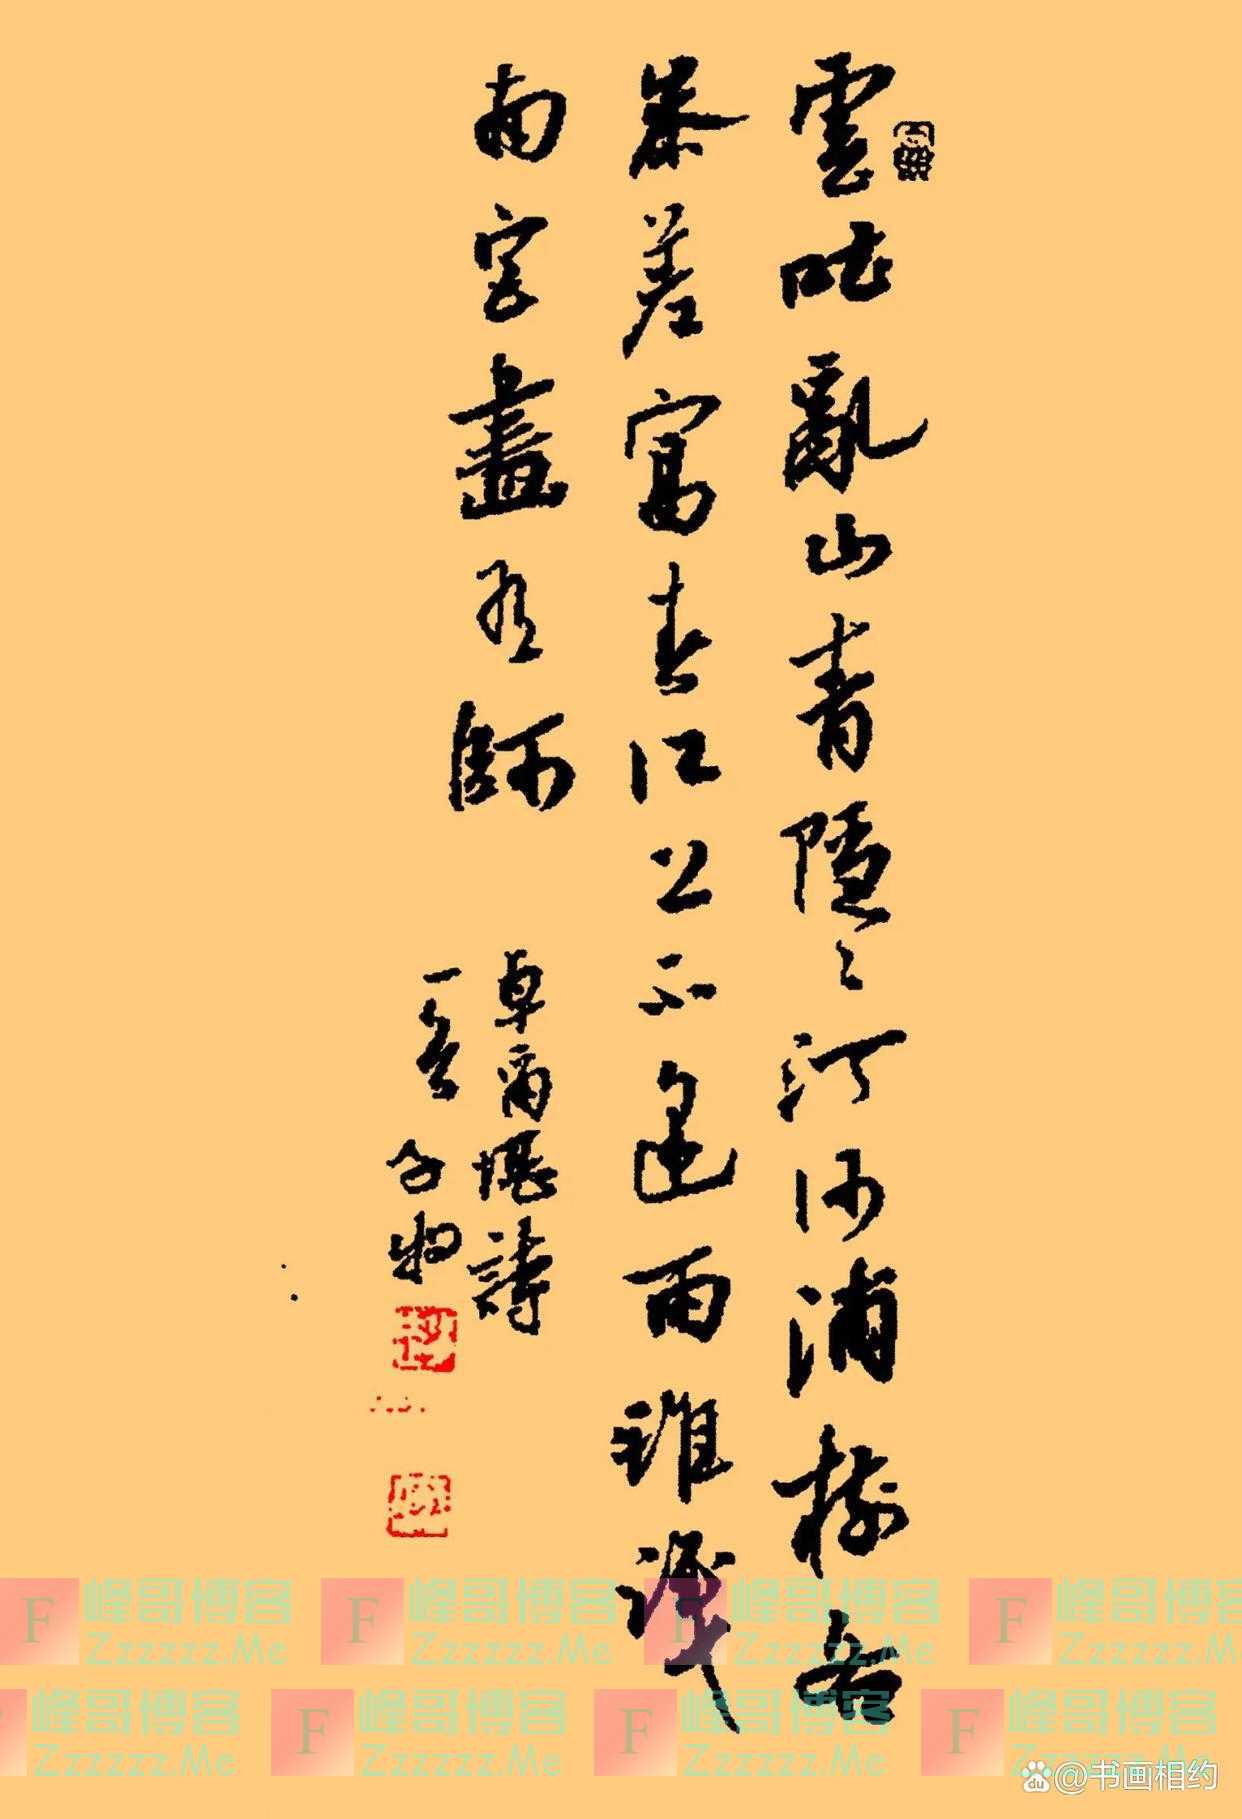 雲吐亂山青隱々汀沙浦樹各
參差富春江上不遇雨誰識
南宮畫有師
卓爾堪詩
F 峰哥博客 Zzzzzz.Me F 峰哥博客 Zzzzzz.Me F 峰哥博客 Zzzzzz.Me F 峰哥博客 Zzzzzz.Me
峰哥博客 Zzzzzz.Me F 峰哥博客 Zzzzzz.Me F 峰哥博客 Zzzzzz.Me F 峰哥博客 Zzzzzz.Me
@书画相约